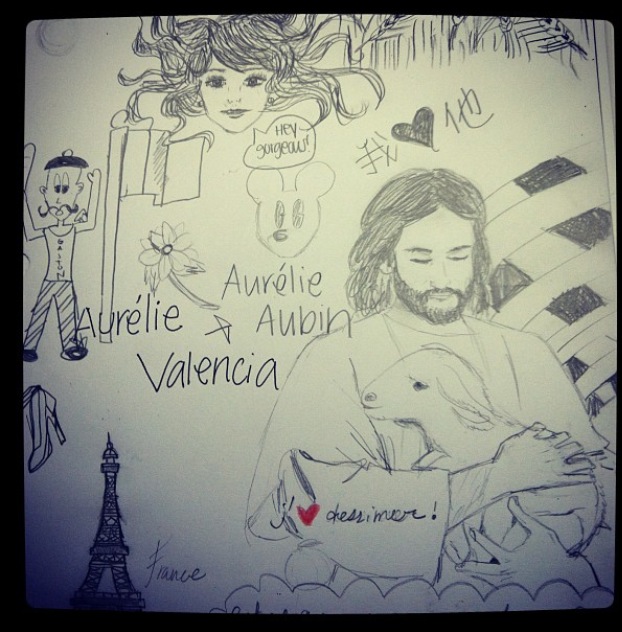 HEY
gorgeous!
我 ♥ 他
GASTON
Aurélie
Aubin
Aurélie →
Valencia
j' ♥ dessiner!
France